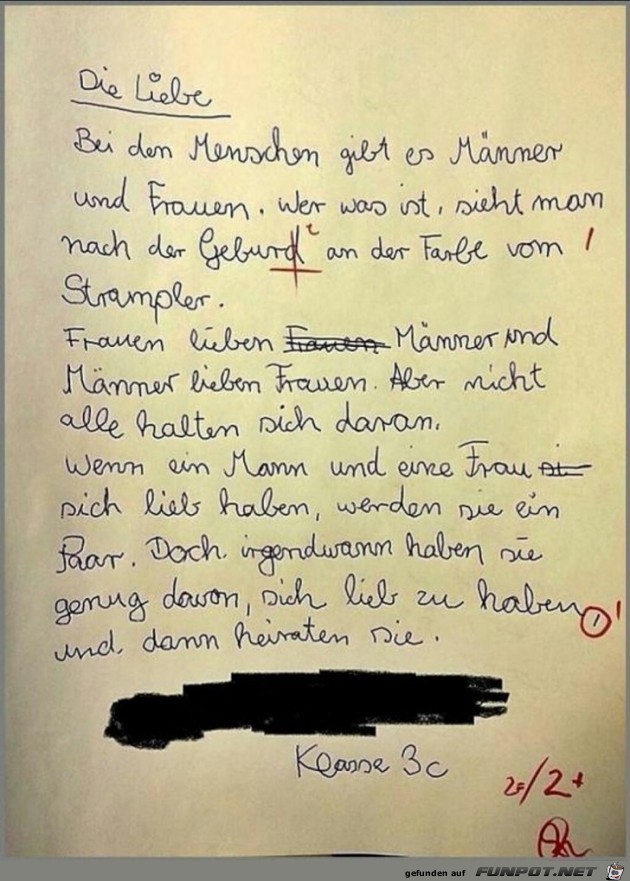 Die Liebe
Bei den Menschen gibt es Männer
und Frauen. Wer was ist, sieht man
nach der Geburd t an der Farbe vom
Strampler.
Frauen lieben Frauen Männer und
Männer lieben Frauen. Aber nicht
alle halten sich daran.
Wenn ein Mann und eine Frau si
sich lieb haben, werden sie ein
Paar. Doch irgendwann haben sie
genug davon, sich lieb zu haben,
und dann heiraten sie.
Klasse 3c
2F/2+
gefunden auf FUNPOT.NET